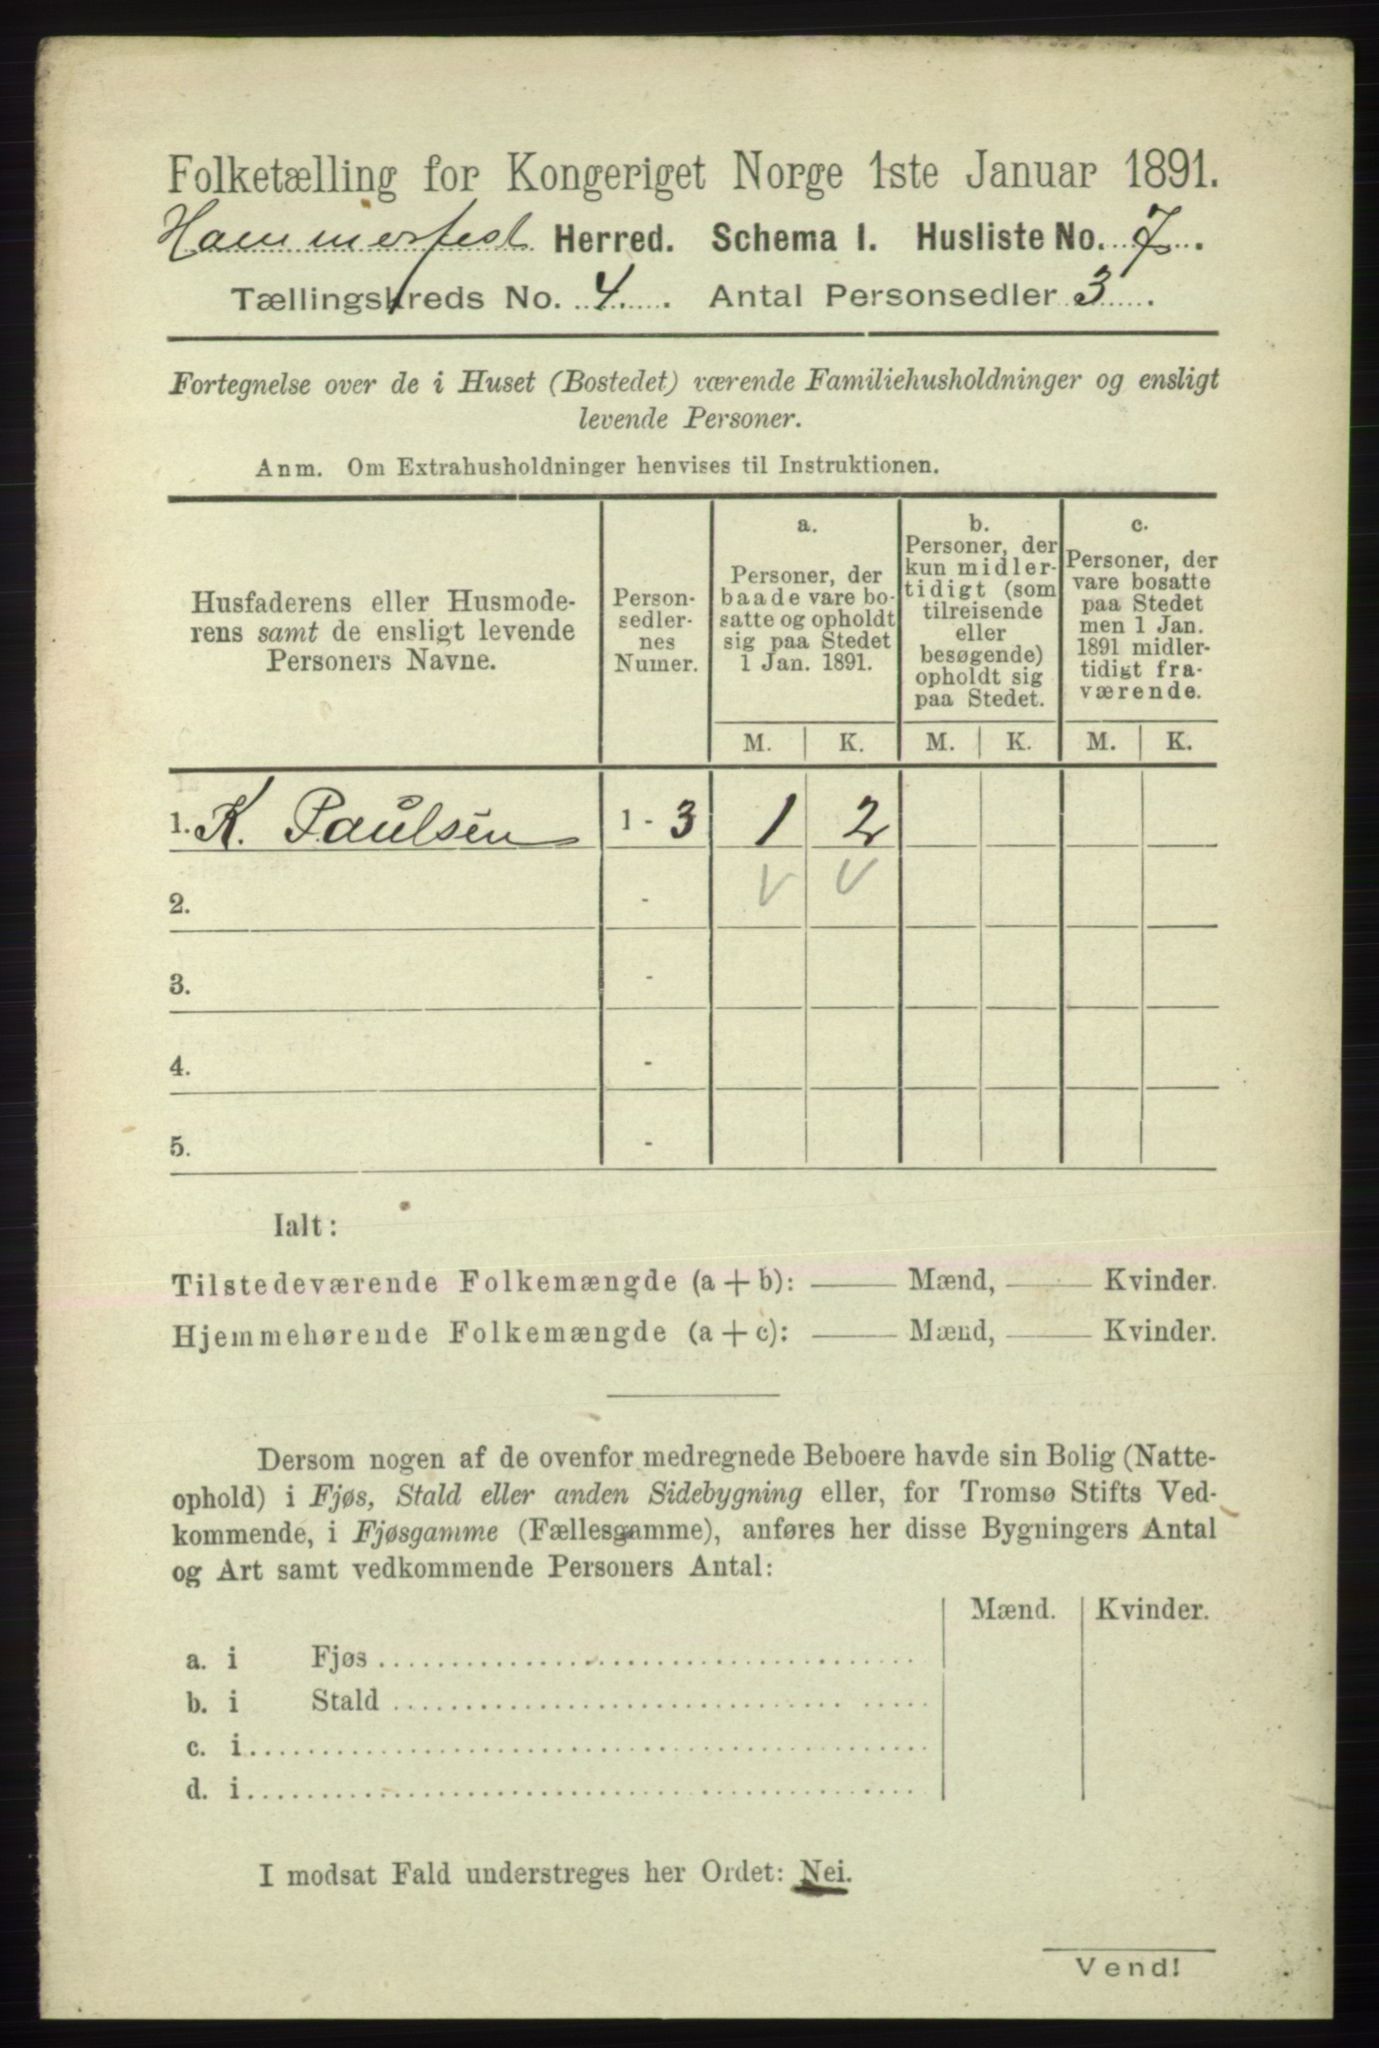 Folketælling for Kongeriget Norge 1ste Januar 1891.
Hammerfest Herred. Schema I. Husliste No. 7.
Tællingskreds No. 4. Antal Personsedler 3.
Fortegnelse over de i Huset (Bostedet) værende Familiehusholdninger og ensligt
levende Personer.
Anm. Om Extrahusholdninger henvises til Instruktionen.
Husfaderens eller Husmode-
rens samt de ensligt levende
Personers Navne.
Person-
sedler-
nes
Numer.
a.
Personer, der
baade vare bo-
satte og opholdt
sig paa Stedet
1 Jan. 1891.
b.
Personer, der
kun midler-
tidigt (som
tilreisende
eller
besøgende)
opholdt sig
paa Stedet.
c.
Personer, der
vare bosatte
paa Stedet
men 1 Jan.
1891 midler-
tidigt fra-
værende.
M. K. M. K. M. K.
1. K. Paulsen 1 - 3 1 2
2. - V V
3. -
4. -
5. -
Ialt:
Tilstedeværende Folkemængde (a + b): —— Mænd, —— Kvinder.
Hjemmehørende Folkemængde (a + c): —— Mænd, —— Kvinder.
Dersom nogen af de ovenfor medregnede Beboere havde sin Bolig (Natte-
ophold) i Fjøs, Stald eller anden Sidebygning eller, for Tromsø Stifts Ved-
kommende, i Fjøsgamme (Fællesgamme), anføres her disse Bygningers Antal
og Art samt vedkommende Personers Antal:
Mænd. Kvinder.
a. i Fjøs
b. i Stald
c. i
d. i
I modsat Fald understreges her Ordet: Nei.
Vend!